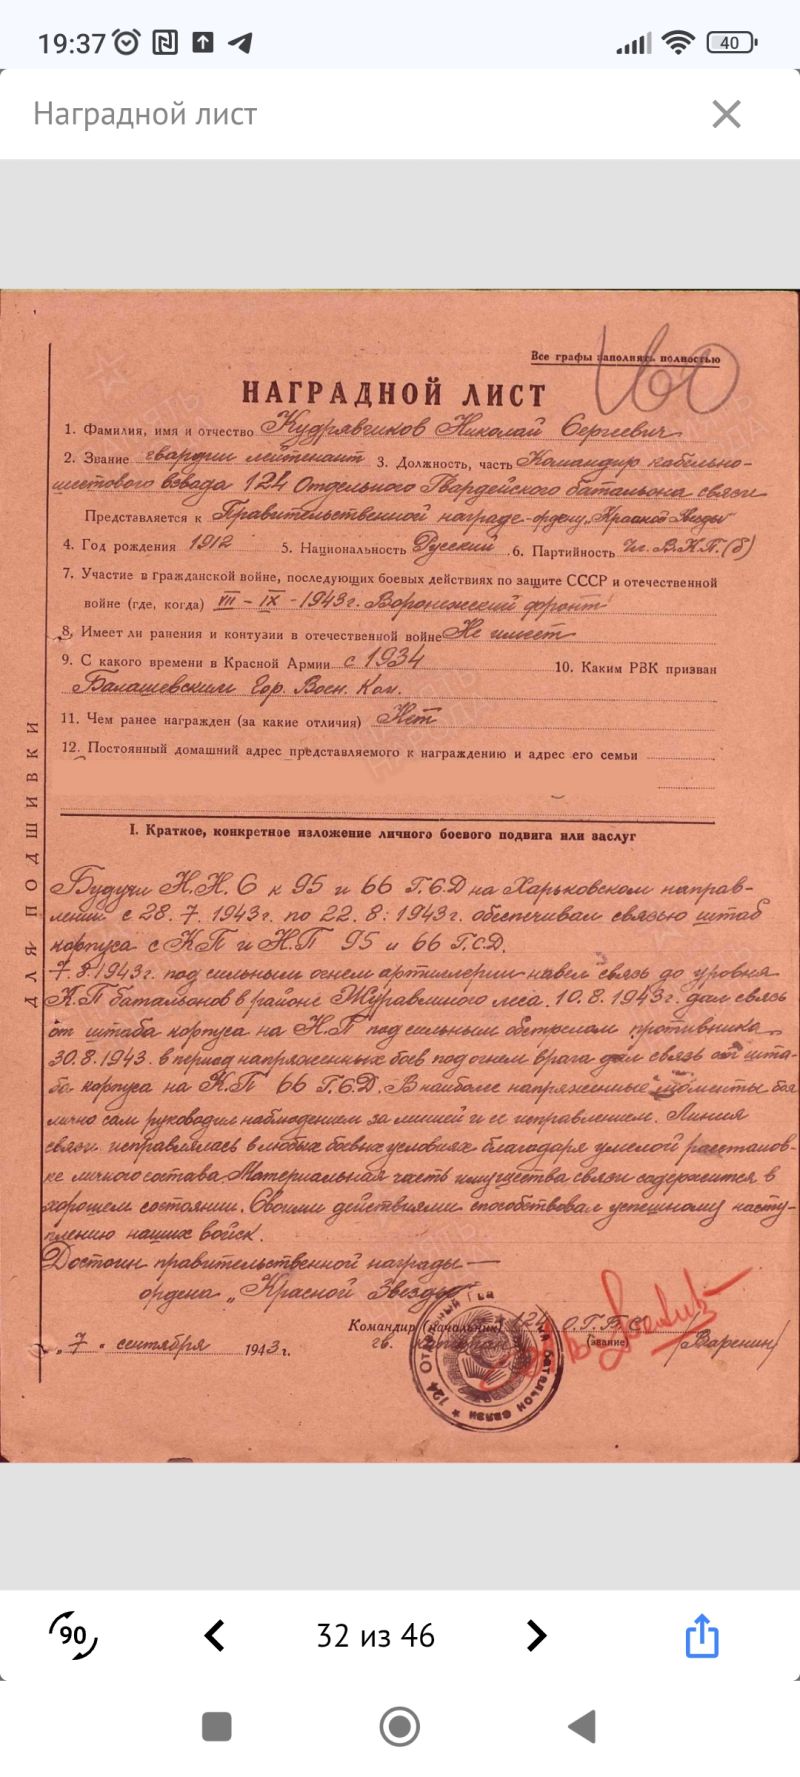 19:37
40
Наградной лист
Все графы заполнять полностью
160
НАГРАДНОЙ ЛИСТ
1. Фамилия, имя и отчество Кудрявчиков Николай Сергеевич
2. Звание гвардии лейтенант 3. Должность, часть Командир кабельно-
шестового взвода 124 Отдельного Гвардейского батальона связи
Представляется к Правительственной награде-ордену „Красной Звезды"
4. Год рождения 1912 5. Национальность Русский 6. Партийность Чл. В.К.П.(б)
7. Участие в гражданской войне, последующих боевых действиях по защите СССР и отечественной
войне (где, когда) VIII – IX - 1943г. Воронежский фронт
8. Имеет ли ранения и контузии в отечественной войне Не имеет
9. С какого времени в Красной Армии с 1934 10. Каким РВК призван
Балашевским Гор. Воен. Ком.
11. Чем ранее награжден (за какие отличия) Нет
12. Постоянный домашний адрес представляемого к награждению и адрес его семьи
ДЛЯ ПОДШИВКИ
I. Краткое, конкретное изложение личного боевого подвига или заслуг
Будучи Н.Н.С к 95 и 66 Г.С.Д на Харьковском направ-
лении с 28.7.1943г. по 22.8.1943г. обеспечивал связью штаб
корпуса с КП и НП 95 и 66 Г.С.Д.
7.8.1943г. под сильным огнем артиллерии навел связь до уровня
К.П батальонов в районе Журавлиного леса. 10.8.1943г. дал связь
от штаба корпуса на Н.П под сильным обстрелом противника
30.8.1943. в период напряженных боев под огнем врага дал связь от шта-
ба корпуса на К.П 66 Г.С.Д. В наиболее напряженные моменты боя
лично сам руководил наблюдением за линией и ее исправлением. Линия
связи исправлялась в любых боевых условиях благодаря умелой расстанов-
ке личного состава. Материальная часть имущества связи содержится в
хорошем состоянии. Своими действиями способствовал успешному насту-
плению наших войск.
Достоин правительственной награды —
ордена „Красной Звезды"
Командир (начальник) 124 О.Г.Б.С.
гв. капитан (звание) /Варенин/
„7" сентября 1943г.
124 ОТДЕЛЬНЫЙ БАТАЛЬОН СВЯЗИ
90
32 из 46